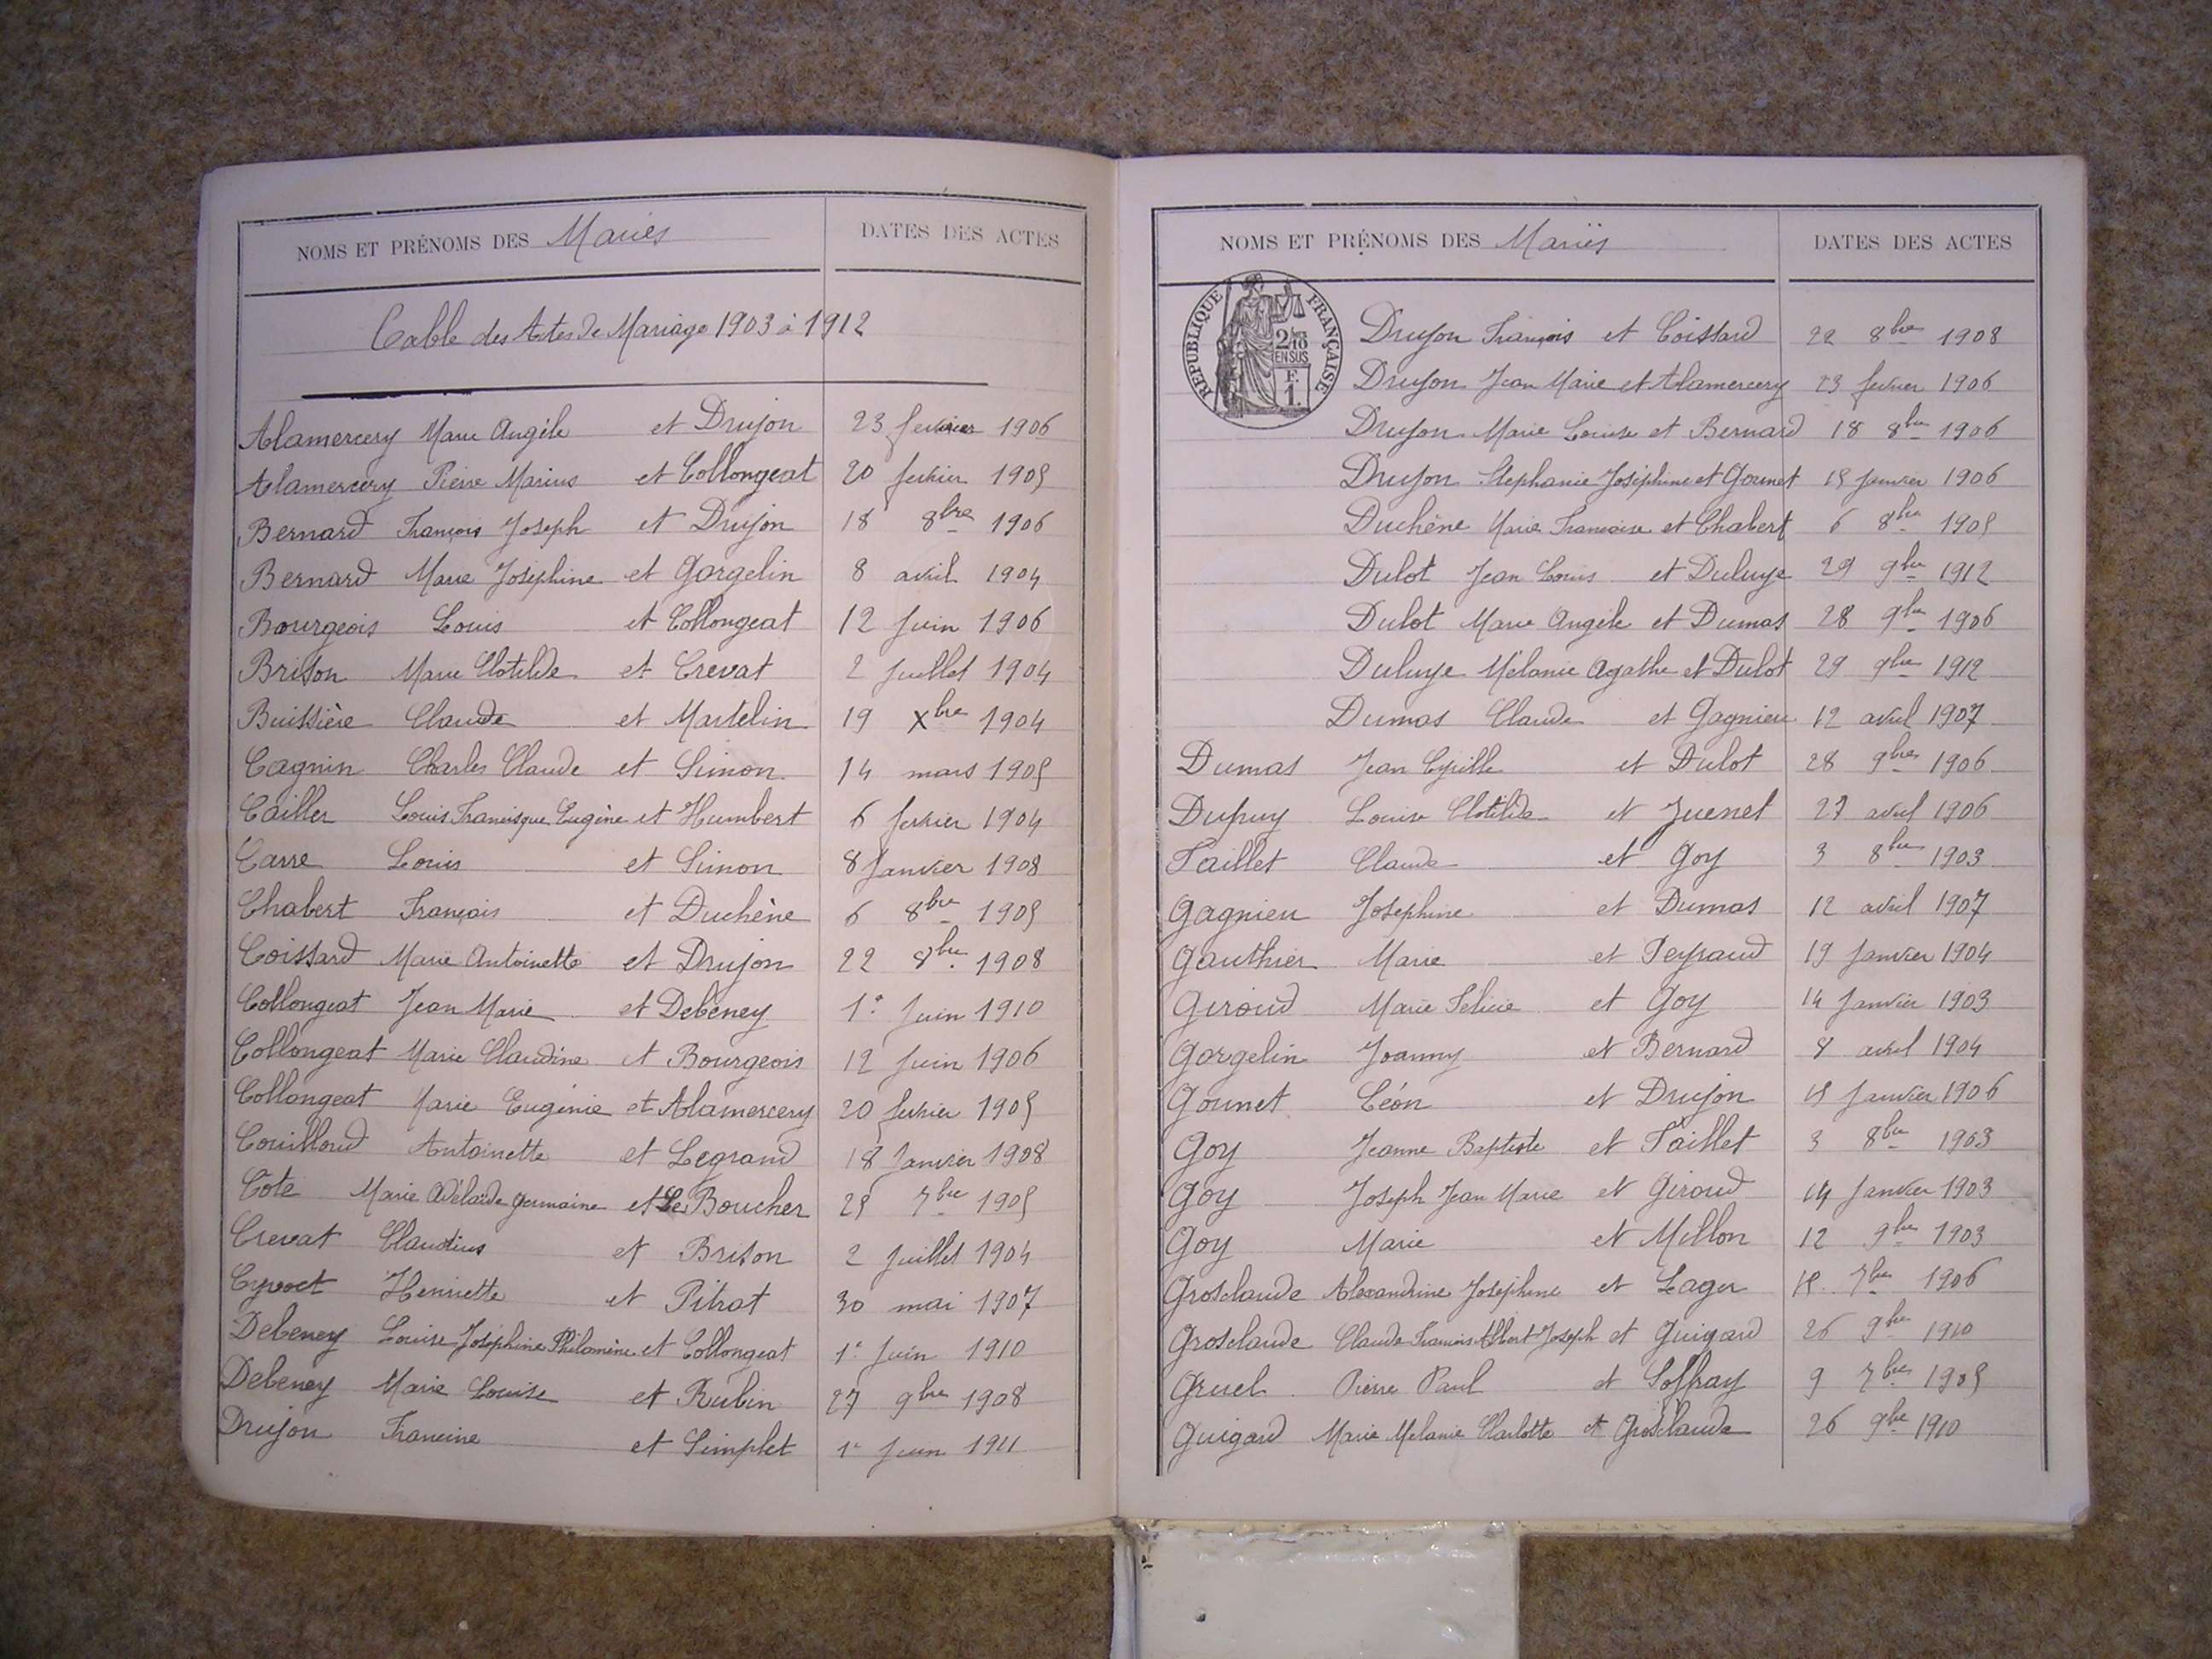 NOMS ET PRÉNOMS DES Mariés DATES DES ACTES
Table des Actes de Mariage 1903 à 1912
Alamercery Marie Angèle et Drujon 23 fevrier 1906
Alamercery Pierre Marius et Collongeat 20 fevrier 1905
Bernard François Joseph et Drujon 18 8bre 1906
Bernard Marie Joséphine et Gorgelin 8 avril 1904
Bourgeois Louis et Collongeat 12 Juin 1906
Brison Marie Clotilde et Crevat 2 Juillet 1904
Buissière Claude et Martelin 19 Xbre 1904
Cagnin Charles Claude et Simon 14 mars 1905
Cailler Louis Francisque Eugène et Humbert 6 fevrier 1904
Carre Louis et Simon 8 Janvier 1908
Chabert François et Duchène 6 8bre 1905
Coissard Marie Antoinette et Drujon 22 8bre 1908
Collongeat Jean Marie et Debeney 1er Juin 1910
Collongeat Marie Claudine et Bourgeois 12 Juin 1906
Collongeat Marie Eugénie et Alamercery 20 fevrier 1905
Couilloud Antoinette et Legrand 18 Janvier 1908
Cote Marie Adélaïde Germaine et Le Boucher 25 7bre 1905
Crevat Claudius et Brison 2 Juillet 1904
Henriette et Pitrat 30 mai 1907
Debeney Louise Joséphine Philomène et Collongeat 1er Juin 1910
Debeney Marie Louise et Rubin 27 9bre 1908
Drujon Francine et Simplet 1er Juin 1911
NOMS ET PRÉNOMS DES Mariés DATES DES ACTES
RÉPUBLIQUE FRANÇAISE
2/10
EN SUS
F.
1.
Drujon François et Coissard 22 8bre 1908
Drujon Jean Marie et Alamercery 23 fevrier 1906
Drujon Marie Louise et Bernard 18 8bre 1906
Drujon Stephanie Joséphine et Gounet 15 Janvier 1906
Duchène Marie Françoise et Chabert 6 8bre 1905
Dulot Jean Louis et Duluye 29 9bre 1912
Dulot Marie Angèle et Dumas 28 9bre 1906
Duluye Mélanie Agathe et Dulot 29 9bre 1912
Dumas Claude et Gagnieu 12 avril 1907
Dumas Jean Cyrille et Dulot 28 9bre 1906
Dupuy Louise Clotilde et Juenet avril 1906
Faillet Claude et Goy 3 8bre 1903
Gagnieu Joséphine et Dumas 12 avril 1907
Gauthier Marie et Peyraud 19 Janvier 1904
Giroud Marie Félicie et Goy 14 Janvier 1903
Gorgelin Joanny et Bernard 8 avril 1904
Gounet Léon et Drujon 15 Janvier 1906
Goy Jeanne Baptiste et Faillet 3 8bre 1903
Goy Joseph Jean Marie et Giroud 14 Janvier 1903
Goy Marie et Millon 12 9bre 1903
Grosclaude Alexandrine Joséphine et Lager 7bre 1906
Grosclaude Claude François Albert Joseph et Guigard 26 9bre 1910
Gruel Pierre Paul et Soffray 9 7bre 1905
Guigard Marie Melanie Charlotte et Grosclaude 26 9bre 1910